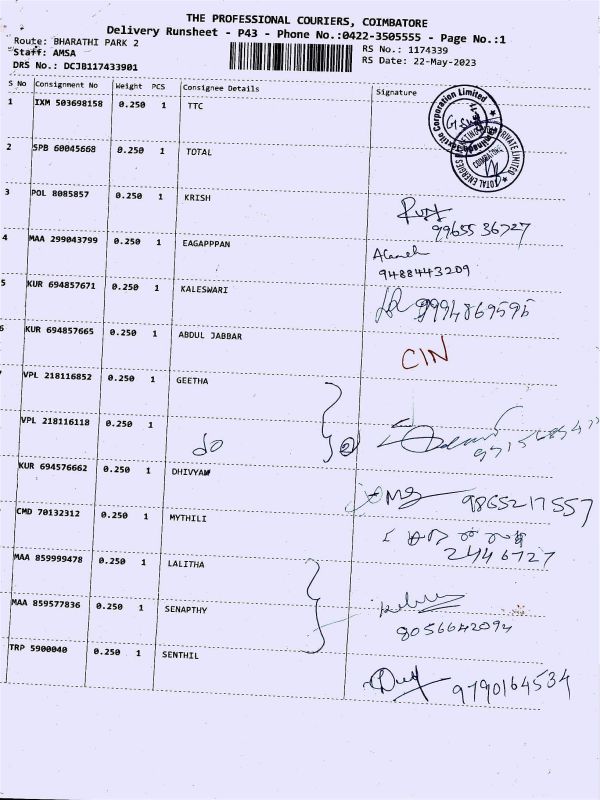 THE PROFESSIONAL COURIERS, COIMBATORE
Delivery Runsheet - P43 - Phone No.:0422-3505555 - Page No.:1
Route: BHARATHI PARK 2
Staff: AMSA
DRS No.: DCJB117433901
RS No.: 1174339
RS Date: 22-May-2023
S No Consignment No Weight PCS Consignee Details Signature
1 IXM 503698158 0.250 1 TTC
2 SPB 60045668 0.250 1 TOTAL
3 POL 8085857 0.250 1 KRISH
9965536727
4 MAA 299043799 0.250 1 EAGAPPPAN
9488443209
5 KUR 694857671 0.250 1 KALESWARI
9994869595
6 KUR 694857665 0.250 1 ABDUL JABBAR
CIN
VPL 218116852 0.250 1 GEETHA
VPL 218116118 0.250 1
do
2
KUR 694576662 0.250 1 DHIVYAM
9865217557
CMD 70132312 0.250 1 MYTHILI
2446727
MAA 859999478 0.250 1 LALITHA
MAA 859577836 0.250 1 SENAPTHY
8056642094
TRP 5900040 0.250 1 SENTHIL
9790164534